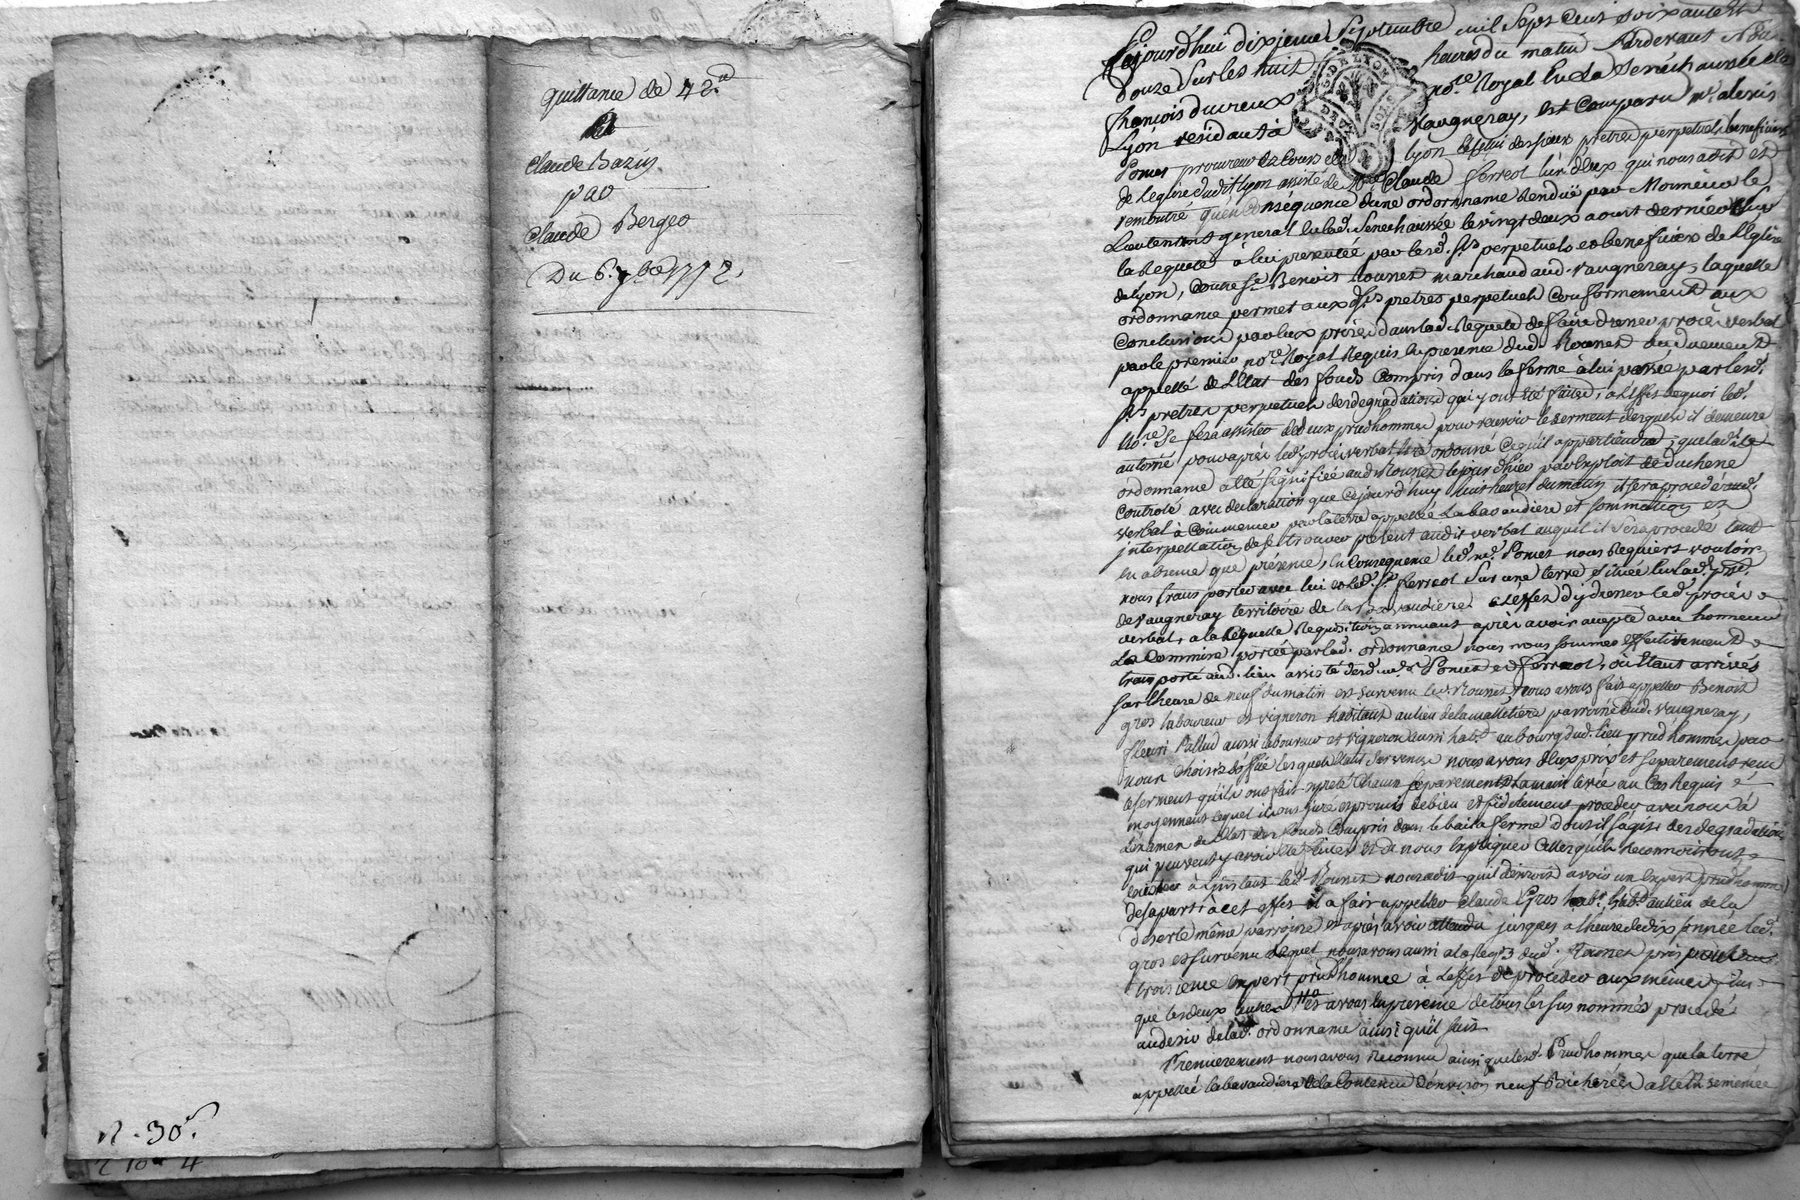 quittance de 42
Claude Bazin
par
Claude Berger
Du 6. 7bre 1772.
n. 30.
Cejourd'hui dixieme Septembre mil Sept Cent soixante et
douze Sur les huit heures du matin Pardevant
françois duvieux no.re Royal En La Senechaussée de
Lyon residant à Vaugneray, Est Comparu m.e alexis
Pomet procureur Es Cours de Lyon Celui des sieurs prêtres perpetuels beneficiers
de L'eglise dudit Lyon assisté de Claude ferreol l'un d'eux qui nous a dit et
remontré qu'en Consequence d'une ordonnance Renduë par Monsieur le
Lieutenant general En lad. Senechaussée le vingt deux aoust dernier Sur
la Requete à lui presentée par lesd. Srs perpetuels et beneficiers de L'Eglise
de Lyon, Contre Sr Benoit Rounet marchand aud. vaugneray, laquelle
ordonnance permet auxd. Srs prêtres perpetuels Conformement aux
Conclusions par Eux prises dans lad. Requete de faire dresser procès verbal
par le premier no.re Royal Requis En presence dud. Rounet ou duement
appellé de L'Etat des fonds Compris dans la ferme à lui passée par lesd.
Srs prêtres perpetuels des degradations qui y ont été faites, à L'effet de quoi led.
no.re Se fera assister de deux prudhommes pour recevoir le serment desquels il demeure
autorisé pour après led. procès verbal Etre ordonné Ce qu'il appartiendra, que lad.
ordonnance a été Signifiée aud. Rounet le jour d'hier par Exploit de duchene
Controlé avec declaration que Cejourd'huy huit heures du matin il sera procedé aud.
verbal à Commencer par la terre appellée La bavaudiere et sommation et
interpellation de se trouver present audit verbal auquel il Sera procedé tant
En absence que présence, En Consequence led. m.e Pomet nous Requiert vouloir
nous transporter avec lui et led. Sr ferreol Sur une terre Située En lad. p.sse
de vaugneray territoire de la Bavaudiere a L'effet d'y dresser led. procès
verbal, a laquelle Requisition annuant après avoir accepté avec honneur
La Commission portée par lad. ordonnance nous nous sommes Effectivement
transporté aud. lieu assisté desd. m.es Pomet et ferreol, où Etant arrivés
Sur L'heure de neuf du matin est survenu led. Rounet, nous avons fait appeller Benoit
gros laboureur et vigneron habitant au lieu de la malletiere parroisse dud. vaugneray,
fleuri Pallud aussi laboureur et vigneron aussi hab.t au bourg dud. lieu prud'hommes par
nous Choisis d'office lesquels Etant Survenus nous avons d'Eux pris et séparement reçu
le serment qu'ils ont fait et preté Chacun separement la main levée au Cas Requis
moyennant lequel ils ont juré et promis de bien et fidelement proceder avec nous à
L'examen de L'Etat des fonds Compris dans le bail a ferme dont il s'agit, des degradations
qui peuvent y avoir été faites et de nous Expliquer Celles qu'ils reconnoitront
Exister à L'instant led. Rounet nous a dit qu'il desiroit avoir un Expert prudhomme
de sa part à cet effet il a fait appeller Claude Gros hab.t au lieu de la
deserte même parroisse et après avoir attendu jusques a L'heure de dix sonnée led.
gros est survenu duquel nous avons aussi a la Req.on dud. Rounet pris
troisieme Expert prud'homme à L'effet de proceder aux mêmes fins
que les deux autres et avons En presence de tous les sus nommés procedé
au desir de lad. ordonnance ainsi qu'il suit
Premierement nous avons reconnu ainsi que lesd. Prudhommes que la terre
appellée la bavaudiere de la Contenuë d'Environ neuf Bicherées a été Ensemencée